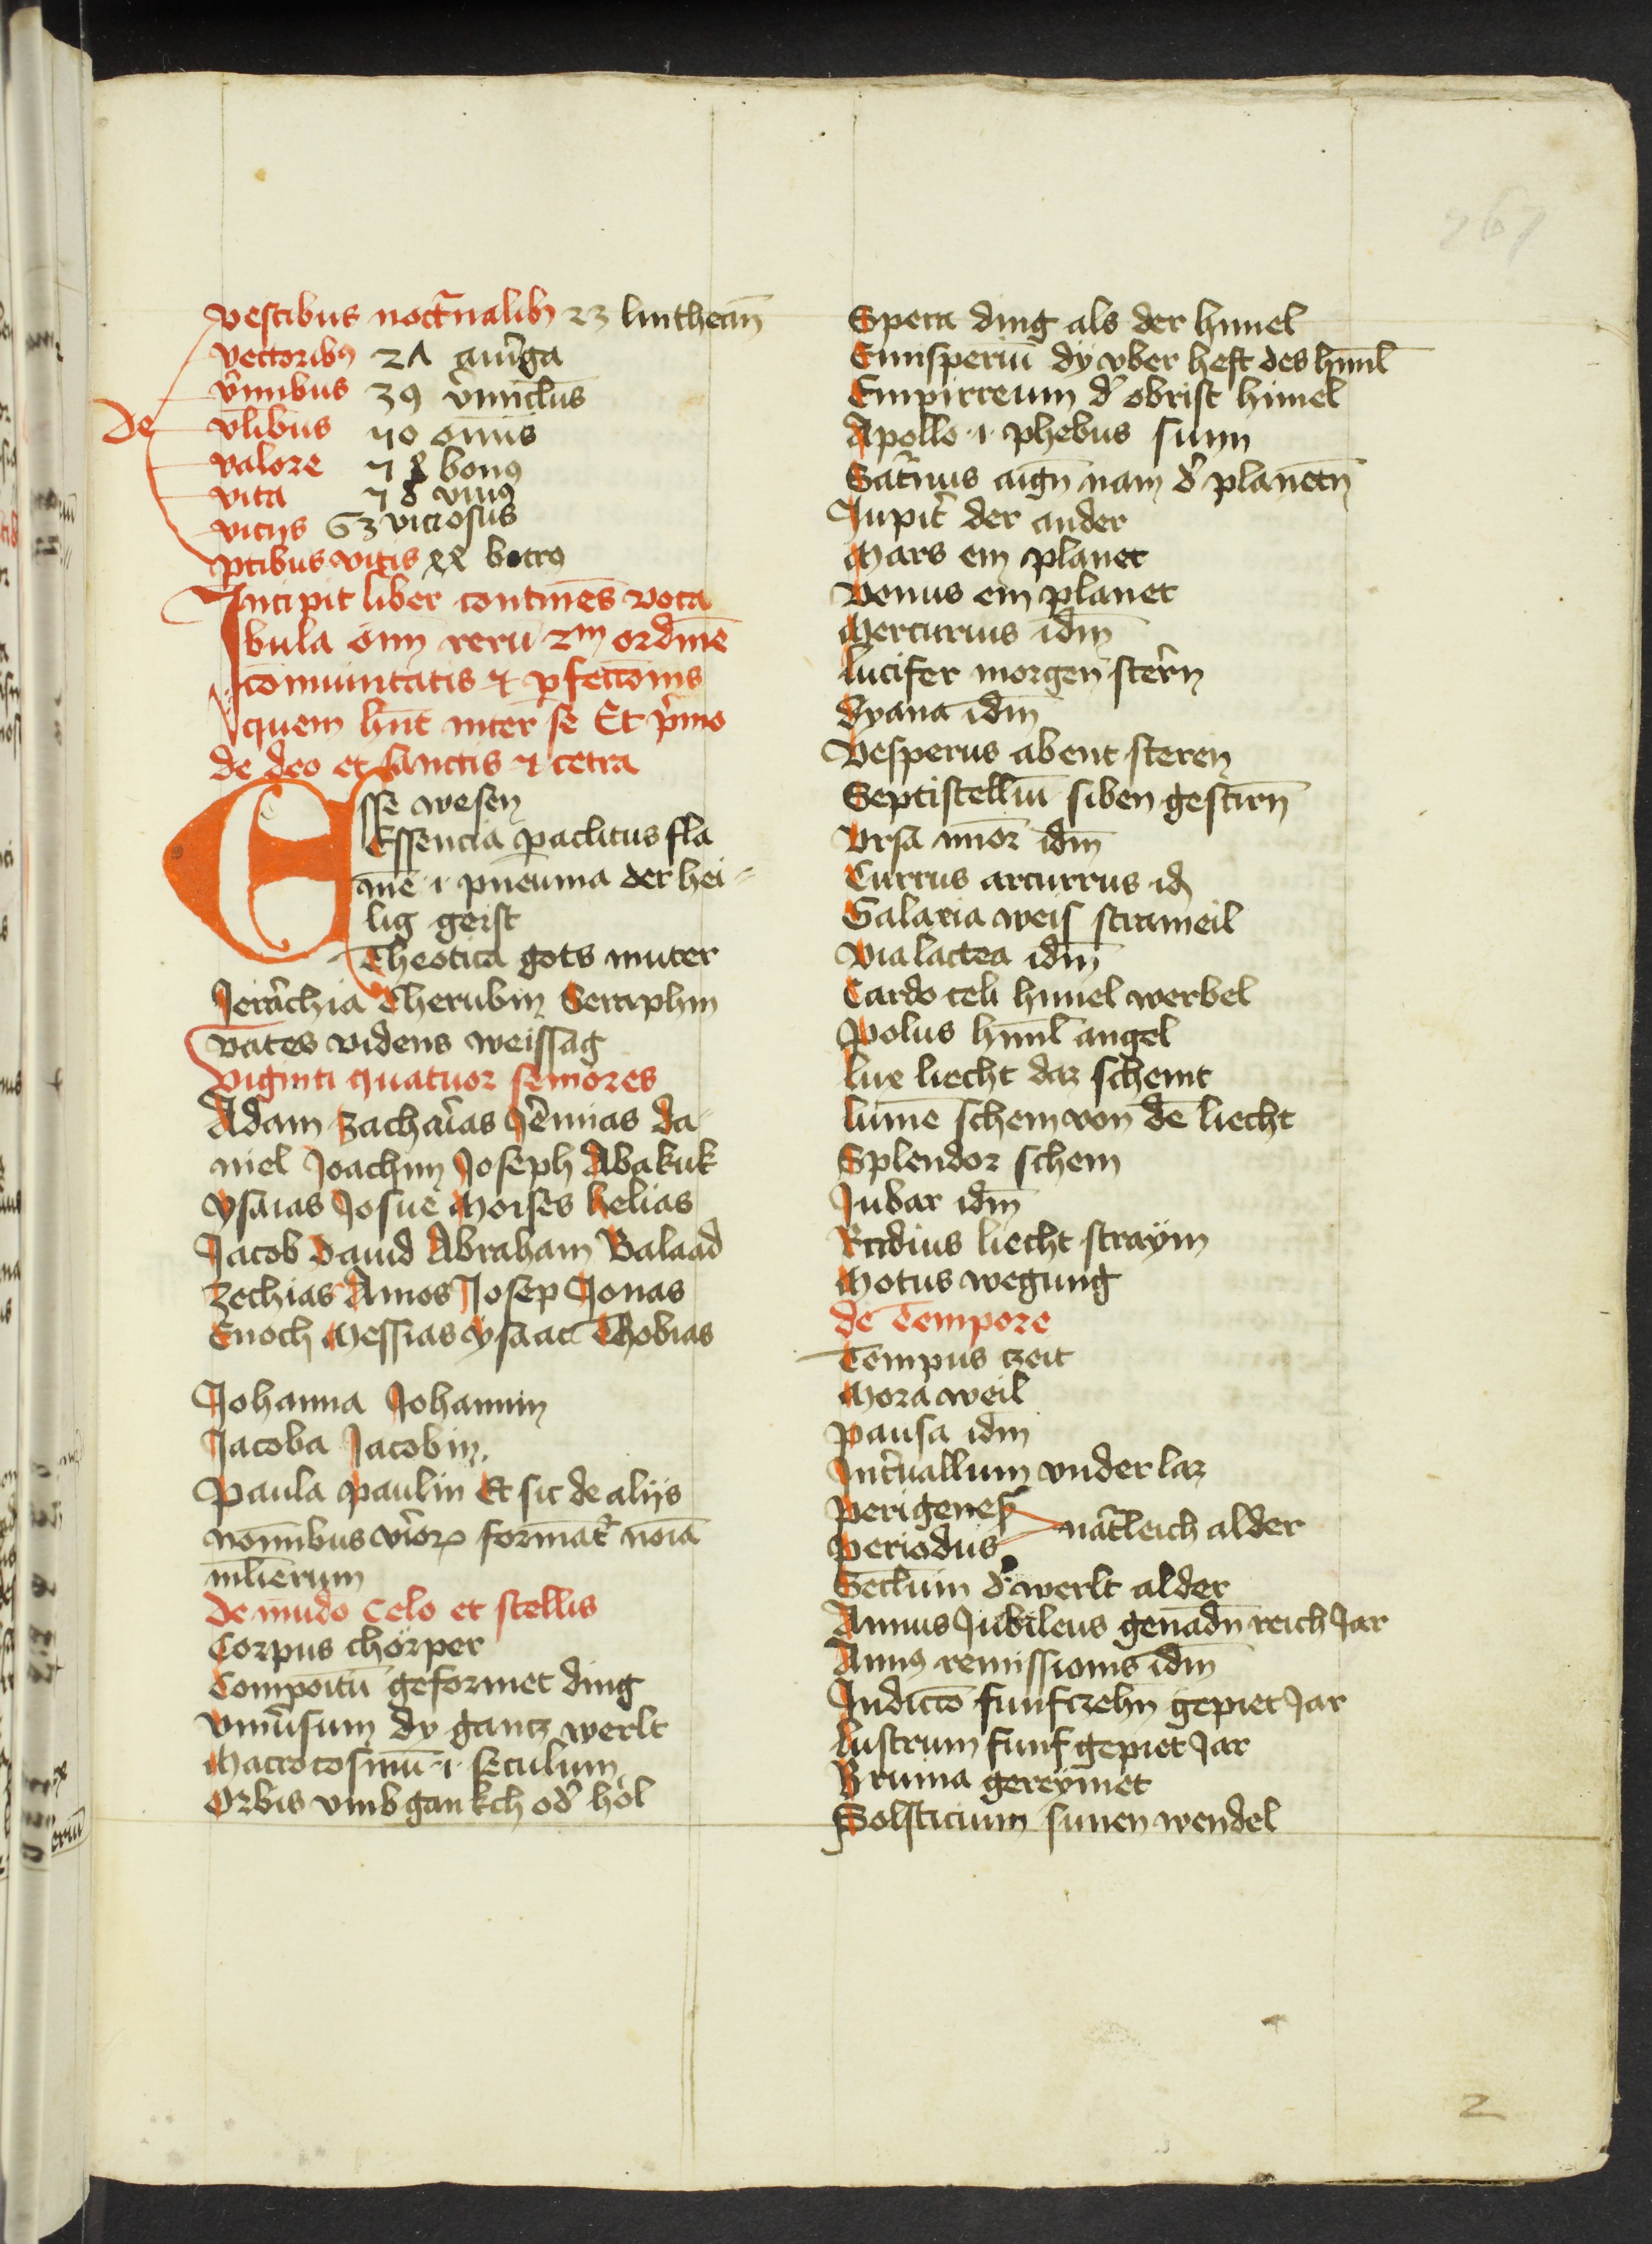 vestibus nocťnalibꝫ 23 lintheam̄
vectoribꝰ 21 auriga
De
v̉mibus 39 v̉miclus̄
vl̄ibus 40 om̄is
valore 48 bonꝰ
vita 48 viuꝰ
vicijs 63 viciosus
ꝑtibus vitis botrꝰ
Incipit liber continēs voca
bula om̄ rerū 2m ordinē
cōmunitatis ⁊ ꝑfecc̄onis
quem hn̄t inter se Et p̉mo
de deo et sanctis ⁊ cetra
Esse wesen
Essencia ꝑaclitus fla
mē .i. pneuma der hei=
lig geist
Theotica gots muter
Jerarchia Cherubin Seraphin
vates videns weissag
viginti quatuor seniores
Adam Zacharias Jeremias da
niel Joachim Joseph Abakuk
ysaias Josue Moises helias
Jacob dauid Abraham Balaad
Zechias Amos Josep Jonas
Enoch Messias ysaac Thobias
Johanna Johannin
Jacoba Jacobin.
Paula paulin Et sic de alijs
nom̄ibus viroꝝ formāt̉ noīa
ml̄ierum
de mūdo Celo et stellis
Corpus chörper
Compoītū geformet ding
vniūsum dy gantz werlt
Macrocosmū .i. seculum
Orbis vmbgankch od̉ hol
Spera ding als der himel
Emisperiū dÿ vber heft des himl̄
Empirreum d̉ obrist himel
Apollo .i. phebus sunn
Sat̉nus aign nam d̉ planetn̄
Jupit̉ der ander
Mars ein planet
Venus ein planet
Mercurius idm̄
lucifer morgen stern̄
dyana idm̄
Vesperus abent steren
Septistelliū siben gestirn̄
vrsa mīor idm̄
Currus arcurrus id
Galaxia weis strameil
Via lactea idm̄
Cardo celi himel werbel
Polus himl̄ angel
lux liecht daz scheint
lumē schein von dē liecht
Splendor schein
Jubar idm̄
Radius liecht straÿm
Motus wegung
de Tempore
Tempus czeit
Mora weil
pausa idm
Int̉uallum vnderlaz
perigenes
periodus nat̉leich alder
Seclum d̉ werlt alder
Annus Jubileus genadn̄ reich Jar
Annꝰ remissionis idm̄
Indictō funfczehn̄ gepiet Jar
lustrum funf gepiet Jar
Bruma gereÿmet
Solsticium sunen wendel
2